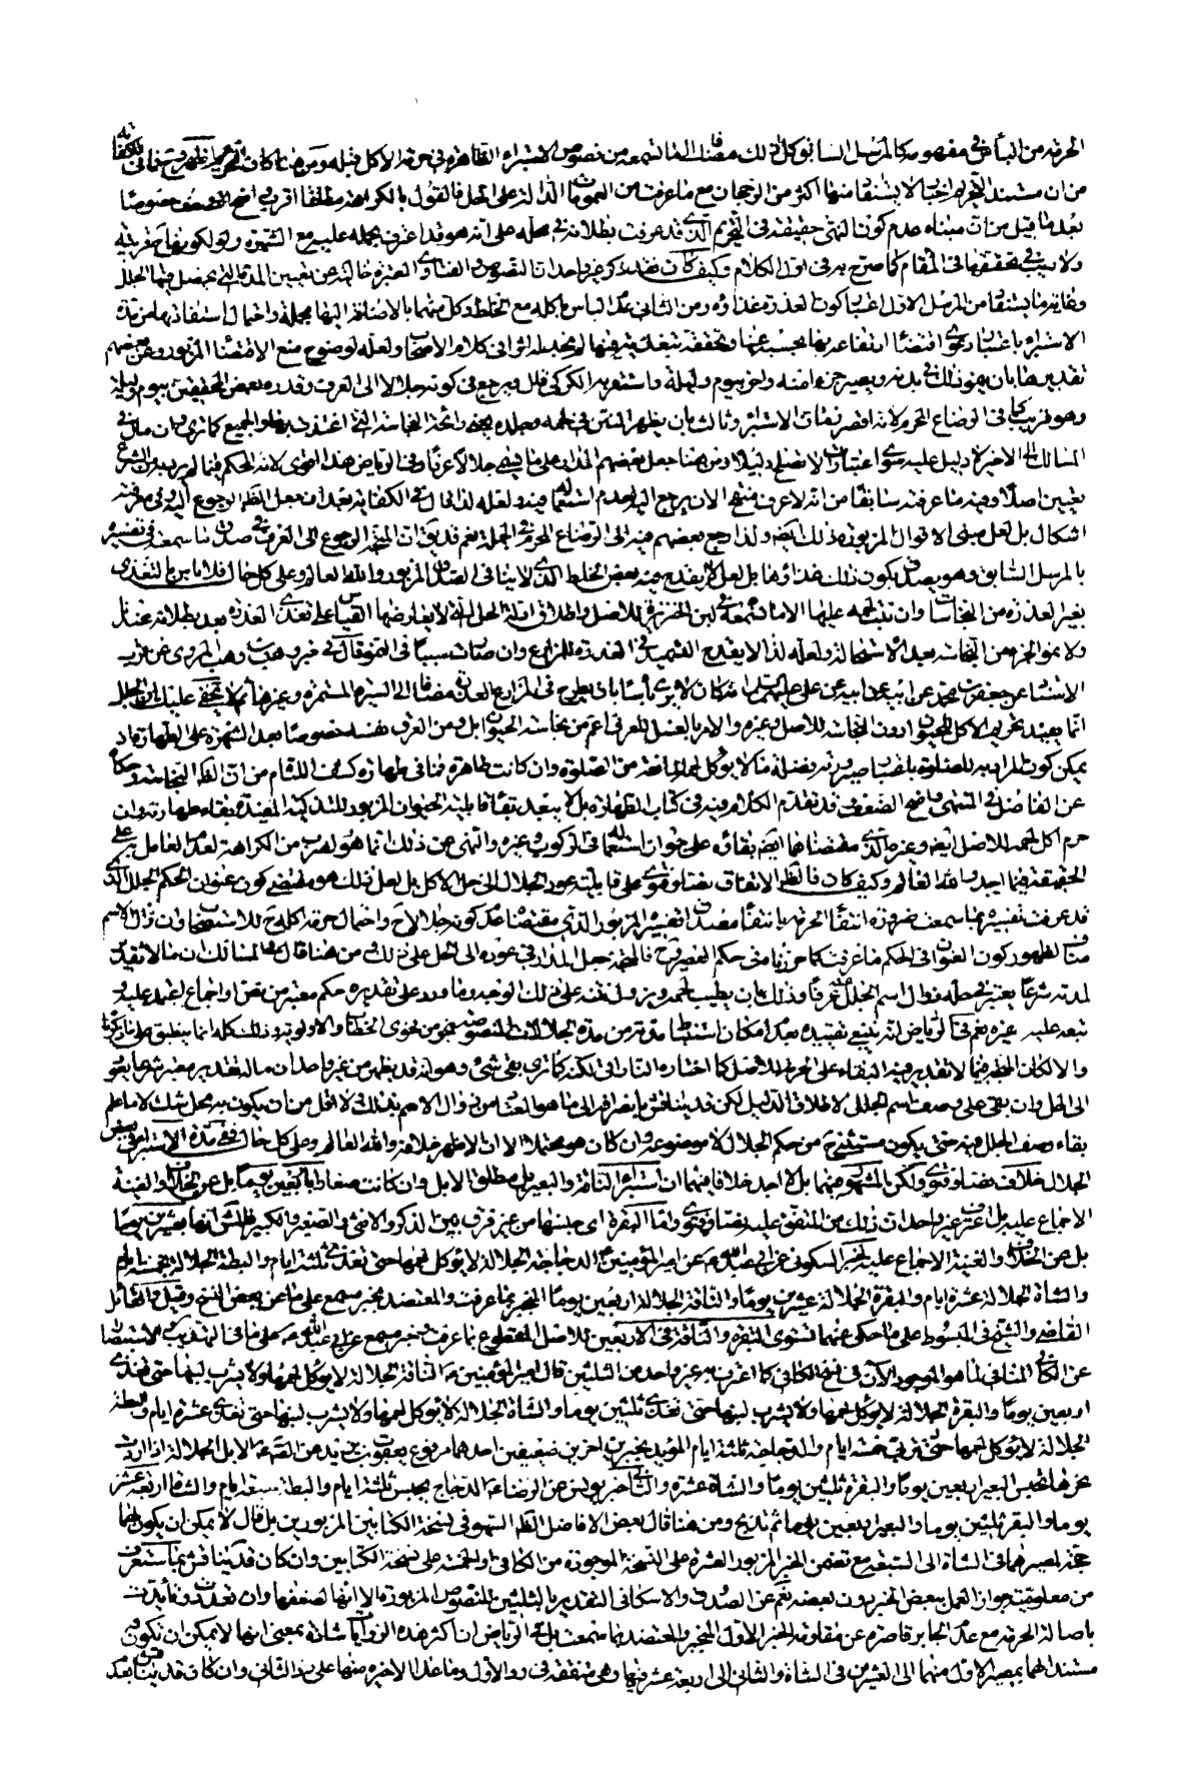 الحرمة من البأس في مفهومه كالمرسل السابق وكل ذلك مضافا الى ما تسمعه من نصوص الاستبراء الظاهرة في حرمة الاكل قبله ومن هنا كان التحريم اظهر
من ان مستند التحريم اخبار لا يستفاد منها اكثر من الرجحان مع ما عرفت من العمومات الدالة على الحل فالقول بالكراهة مطلقا اقرب واضح الضعف خصوصا
بعد ما قيل من ان مبناه عدم كون النهي حقيقة في التحريم الذي قد عرفت بطلانه في محله على انه هو قد اعترف بحمله عليه مع الشهرة ولو لكونها قرينة
ولا ريب في تحققها في المقام كما صرح به في اول الكلام وكيف كان فقد ذكر غير واحد ان النصوص والفتاوى المعتبرة خالية عن تعيين المدة التي يحصل فيها الجلل
وغايته ما يستفاد من المرسل الاول اعتبار كون العذرة غذاءه ومن الثاني عدم البأس باكله مع الخلط وكل منهما بالاضافة اليها مجملة واحتمال استفادتها من مدة
الاستبراء باعتبار دعوى اقتضاء ارتفاعه بها بحسبه عنها وتحققه
تقديرها بان ينمو ذلك في بدنه ويصير جزءا منه واخر بيوم وليلة واستقر به الكركي قال ويرجع في كونه جلالا الى العرف وقدره بعض المحققين بيوم وليلة
وهو قريب كما في الرضاع المحرم لانه اقصر زمان الاستبراء وثالث بان يظهر النتن في لحمه وجلده يعني رائحة النجاسة التي اغتذت بها والجميع كما ترى
المسالك الى الاخير لا دليل عليه سوى اعتبار
يقين اصلا وفيه ما عرفته سابقا من انه لا عرف منقح الان يرجع اليه لعدم استعماله فيه ولعله لذا قال في الكفاية بعد ان جعل الظاهر الرجوع اليه وفي معرفته
اشكال بل لعل مبنى الاقوال المزبورة ذلك ايضا ولذا رجع بعضهم فيه الى الرضاع المحرم في الجملة نعم قد يقال ان المتجه الرجوع الى العرف في صدق ما سمعت في تفسيره
بالمرسل السابق وهو يصدق بكون ذلك غذاؤها بل لعله لا يقدح فيه بعض الخلط الذي لا ينافي الصدق المزبور والله العالم وعلى كل حال فلا بأس بالتغذي
بغير العذرة من النجاسات وان نبت لحمه عليها الا ما تسمعه في لبن الخنزيرة للاصل واطلاق ادلة الحل التي لا يعارضها القياس على تغذي العذرة بعد بطلانه عندنا
ولا نمو الجزء من النجاسة بعد الاستحالة ولعله لذا لا يقدح التسميد في العذرة للزرع وان صارت سببا في النمو قال في خبر وهب بن وهب المروي عن قرب
الاسناد عن جعفر بن محمد عن ابيه عن ابيه عن علي عليهم السلام انه كان لا يرى بأسا بان يطرح في المزارع العذرة مضافا الى السيرة المستمرة وغيرها ثم لا يخفى عليك ان الجلل
انما يفيد تحريم الاكل للحيوان دون النجاسة للاصل وغيره والامر بالغسل للعرق اعم من نجاسة الحيوان بل ومن العرق نفسه خصوصا بعد الشهرة على الطهارة اذ
يمكن كون المراد به للصلوة باعتبار صيرورته فضلة مما لا يؤكل لحمه المانعة من الصلوة وان كانت طاهرة فما في طهارة كشف اللثام من ان الظاهر النجاسة وحكاه
عن الفاضل في المنتهى واضح الضعف قد تقدم الكلام فيه في كتاب الطهارة بل لا يبعد بقاء قابلية الحيوان المزبور للتذكية المفيدة بقاء طهارته وان
حرم اكل لحمه للاصل ايضا وغيره الذي مقتضاهما ايضا بقاؤه على جواز استعماله في الركوب وغيره والنهي عن ذلك انما هو لضرب من الكراهة لعدم العامل به على
الحقيقة فيما اجد والله العالم وكيف كان فالظاهر الاتفاق نصا وفتوى على قابلية عود الجلال الى حل الاكل بل لعل ذلك هو مقتضى كون عنوان الحكم الجلل الذي
قد عرفت تفسيره بما سمعت ضرورة انتفاء الحرمة بانتفاء مصداق تفسيره المزبور الذي مقتضاه عدم كونه جلالا ح واحتمال حرمة اكله ح للاستصحاب وان زال الاسم
مناف لظهور كون العنوان في الحكم ما عرفت كما حررناه في حكم العصير وح فالمتجه جعل المدار في عوده الى الحل على ذلك ومن هنا قال في المسالك ان ما لا تقدير
لمدته شرعا يعتبر في حله زوال اسم الجلل عنه عرفا وذلك بان يطيب لحمه ويزول نتنه على ذلك الوجه وما ورد على تقديره حكم معتبر من نص او اجماع اعتمد عليه و
تبعه عليه غيره نعم في الرياض انه ينبغي تقييده بعدم امكان استنباط مدته من مدة الجلالات المنصوصة بنحو من فحوى الخطاب والاولوية وذلك كله انما ينطبق على ما ذكرناه
والا لكان المتجه فيما لا تقدير فيه البقاء على الحرمة للاصل كما اختاره النراقي لكنه كما ترى بقي شيء وهو انه قد يظهر من غير واحد ان ما له تقدير معتبر شرعا يعود
الى الحل وان بقي على وصف اسم الجلل لاطلاق الدليل لكن قد يناقش بانصرافه الى ما هو المعتاد من زوال الاسم بذلك ولا اقل من ان يكون به محل شك لا ما علم
بقاء وصف الجلل فيه حتى يكون مستثنى ح من حكم الجلال لا موضوعه وان كان هو محتملا الا ان الاظهر خلافه والله العالم وعلى كل حال ففي مدة الاستبراء في بعض
الجلال خلاف نصا وفتوى ولكن المشهور فيهما بل لا اجد خلافا فيهما ان استبراء الناقة والبعير بل مطلق الابل وان كانت صغارا باربعين يوما بل عن الخلاف والغنية
الاجماع عليه بل اعترف غير واحد ان ذلك من المتفق عليه نصا وفتوى واما البقرة اي جنسها من غير فرق بين الذكر والانثى والصغير والكبير فالمشهور انها بعشرين يوما
بل عن الخلاف والغنية الاجماع عليه لخبر السكوني عن ابي عبد الله ع عن امير المؤمنين ع الدجاجة الجلالة لا يؤكل لحمها حتى تغتذي ثلثة ايام والبطة الجلالة بخمسة ايام
والشاة الجلالة عشرة ايام والبقرة الجلالة عشرين يوما والناقة الجلالة اربعين يوما المنجبر بما عرفت والمعتضد بخبر مسمع على ما عن بعض النسخ وقيل والقائل
القاضي والشيخ في المبسوط على ما حكي عنهما تستوي البقرة والناقة في الاربعين للاصل المقطوع بما عرفت وخبر مسمع عن ابي عبد الله ع على ما في التهذيب والاستبصار
عن الكافي المنافي لما هو الموجود الآن في نسخ الكافي كما اعترف به غيره واحد من الثلثين قال امير المؤمنين ع الناقة الجلالة لا يؤكل لحمها ولا يشرب لبنها حتى تغذى
اربعين يوما والبقرة الجلالة لا يؤكل لحمها ولا يشرب لبنها حتى تغذى ثلثين يوما والشاة الجلالة لا يؤكل لحمها ولا يشرب لبنها حتى تغذى عشرة ايام والبطة
الجلالة لا يؤكل لحمها حتى تربى خمسة ايام والدجاجة ثلثة ايام المؤيد بخبرين اخرين ضعيفين احدهما مرفوع يعقوب بن يزيد عن الصادق ع الابل الجلالة اذا اردت
نحرها تحبس البعير اربعين يوما والبقرة ثلثين يوما والشاة عشرة والثاني خبر يونس عن الرضا ع الدجاج يحبس ثلثة ايام والبطة سبعة ايام والشاة اربعة عشر
يوما والبقر ثلثين يوما والبعير اربعين يوما ثم تذبح ومن هنا قال بعض الافاضل الظاهر السهو في نسخة الكتابين المزبورين بل قال لا يمكن ان يكون لهما
حجة لمصيرهما في الشاة الى السبعة مع تضمن الخبر المزبور العشرة على النسخة الموجودة من الكافي او الخمسة على نسخة الكتابين وان كان قد يناقش بما ستعرف
من معلومية جواز العمل ببعض الخبر دون بعضه نعم عن الصدوق والاسكافي التقدير بالثلثين للنصوص المزبورة الا انها لضعفها وان تعددت وتأيدت
باصالة الحرمة مع عدم الجابر قاصرة عن مقاومة الخبر الاول المنجبر والمعتضد بما سمعت بل في الرياض ان اكثر هذه الروايات شاذة بمعنى انها لا يمكن ان يكون
مستندا لهما لمصير الاول منهما الى العشرين في الشاة والثاني الى اربعة عشر فيها وهي متفقة في رد الاول وما عدا الاخيرة منها على رد الثاني وان كان قد يناقش بعد